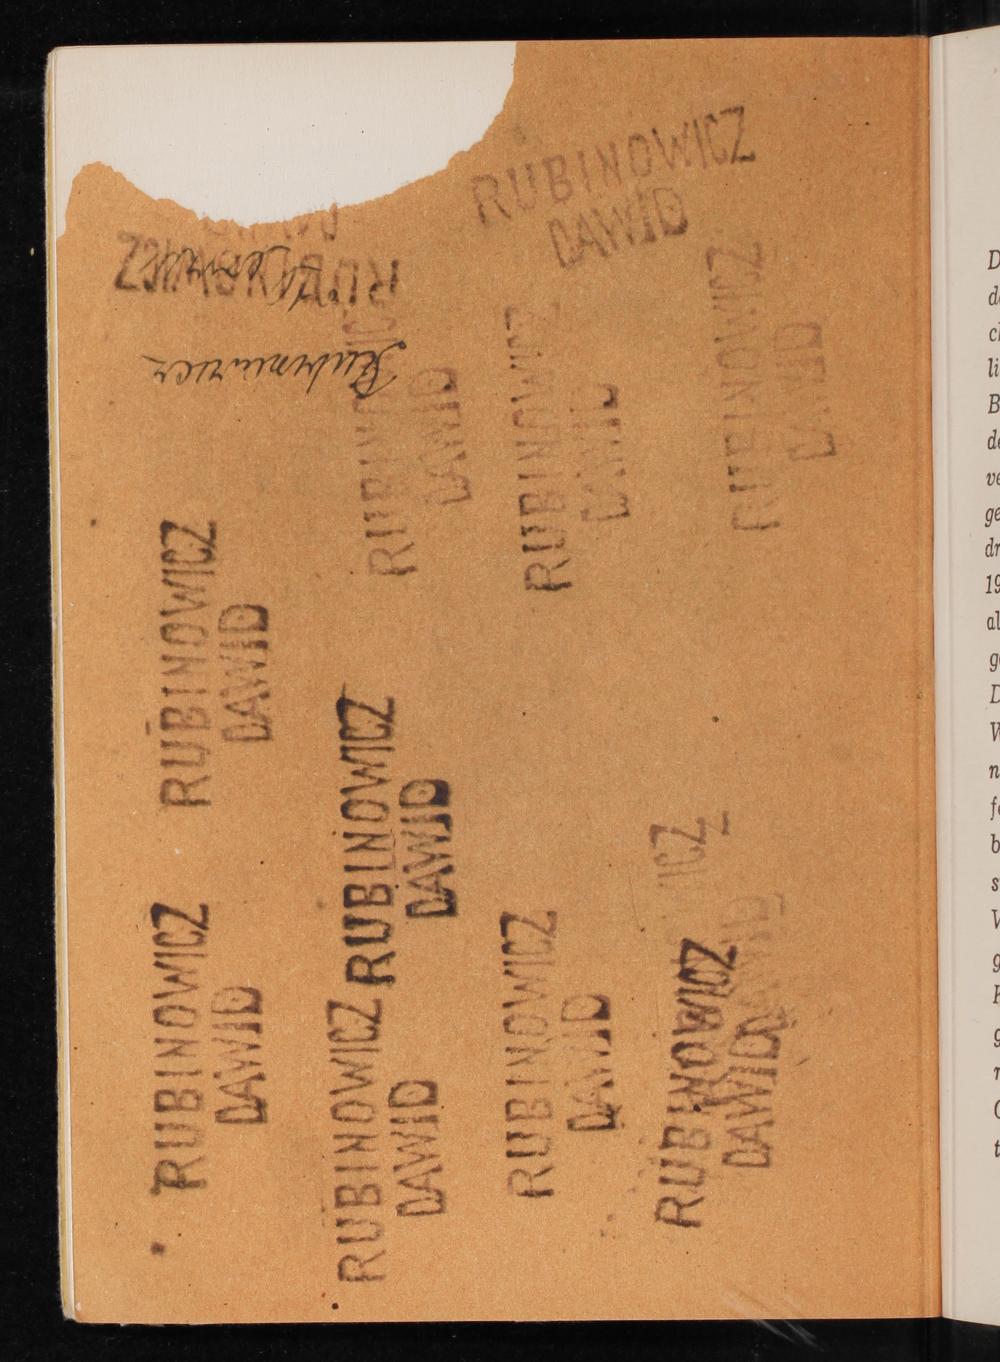 RUBINOWICZ
DAWID
DAWID
RUBINOWICZ
Rubinowicz
RUBINOWICZ
DAWID
RUBINOWICZ
DAWID
RUBINOWICZ
DAWID
RUBINOWICZ
DAWID
RUBINOWICZ
DAWID
RUBINOWICZ
DAWID
RUBINOWICZ
DAWID
RUBINOWICZ
DAWID
RUBINOWICZ
DAWID
ICZ
DAWID